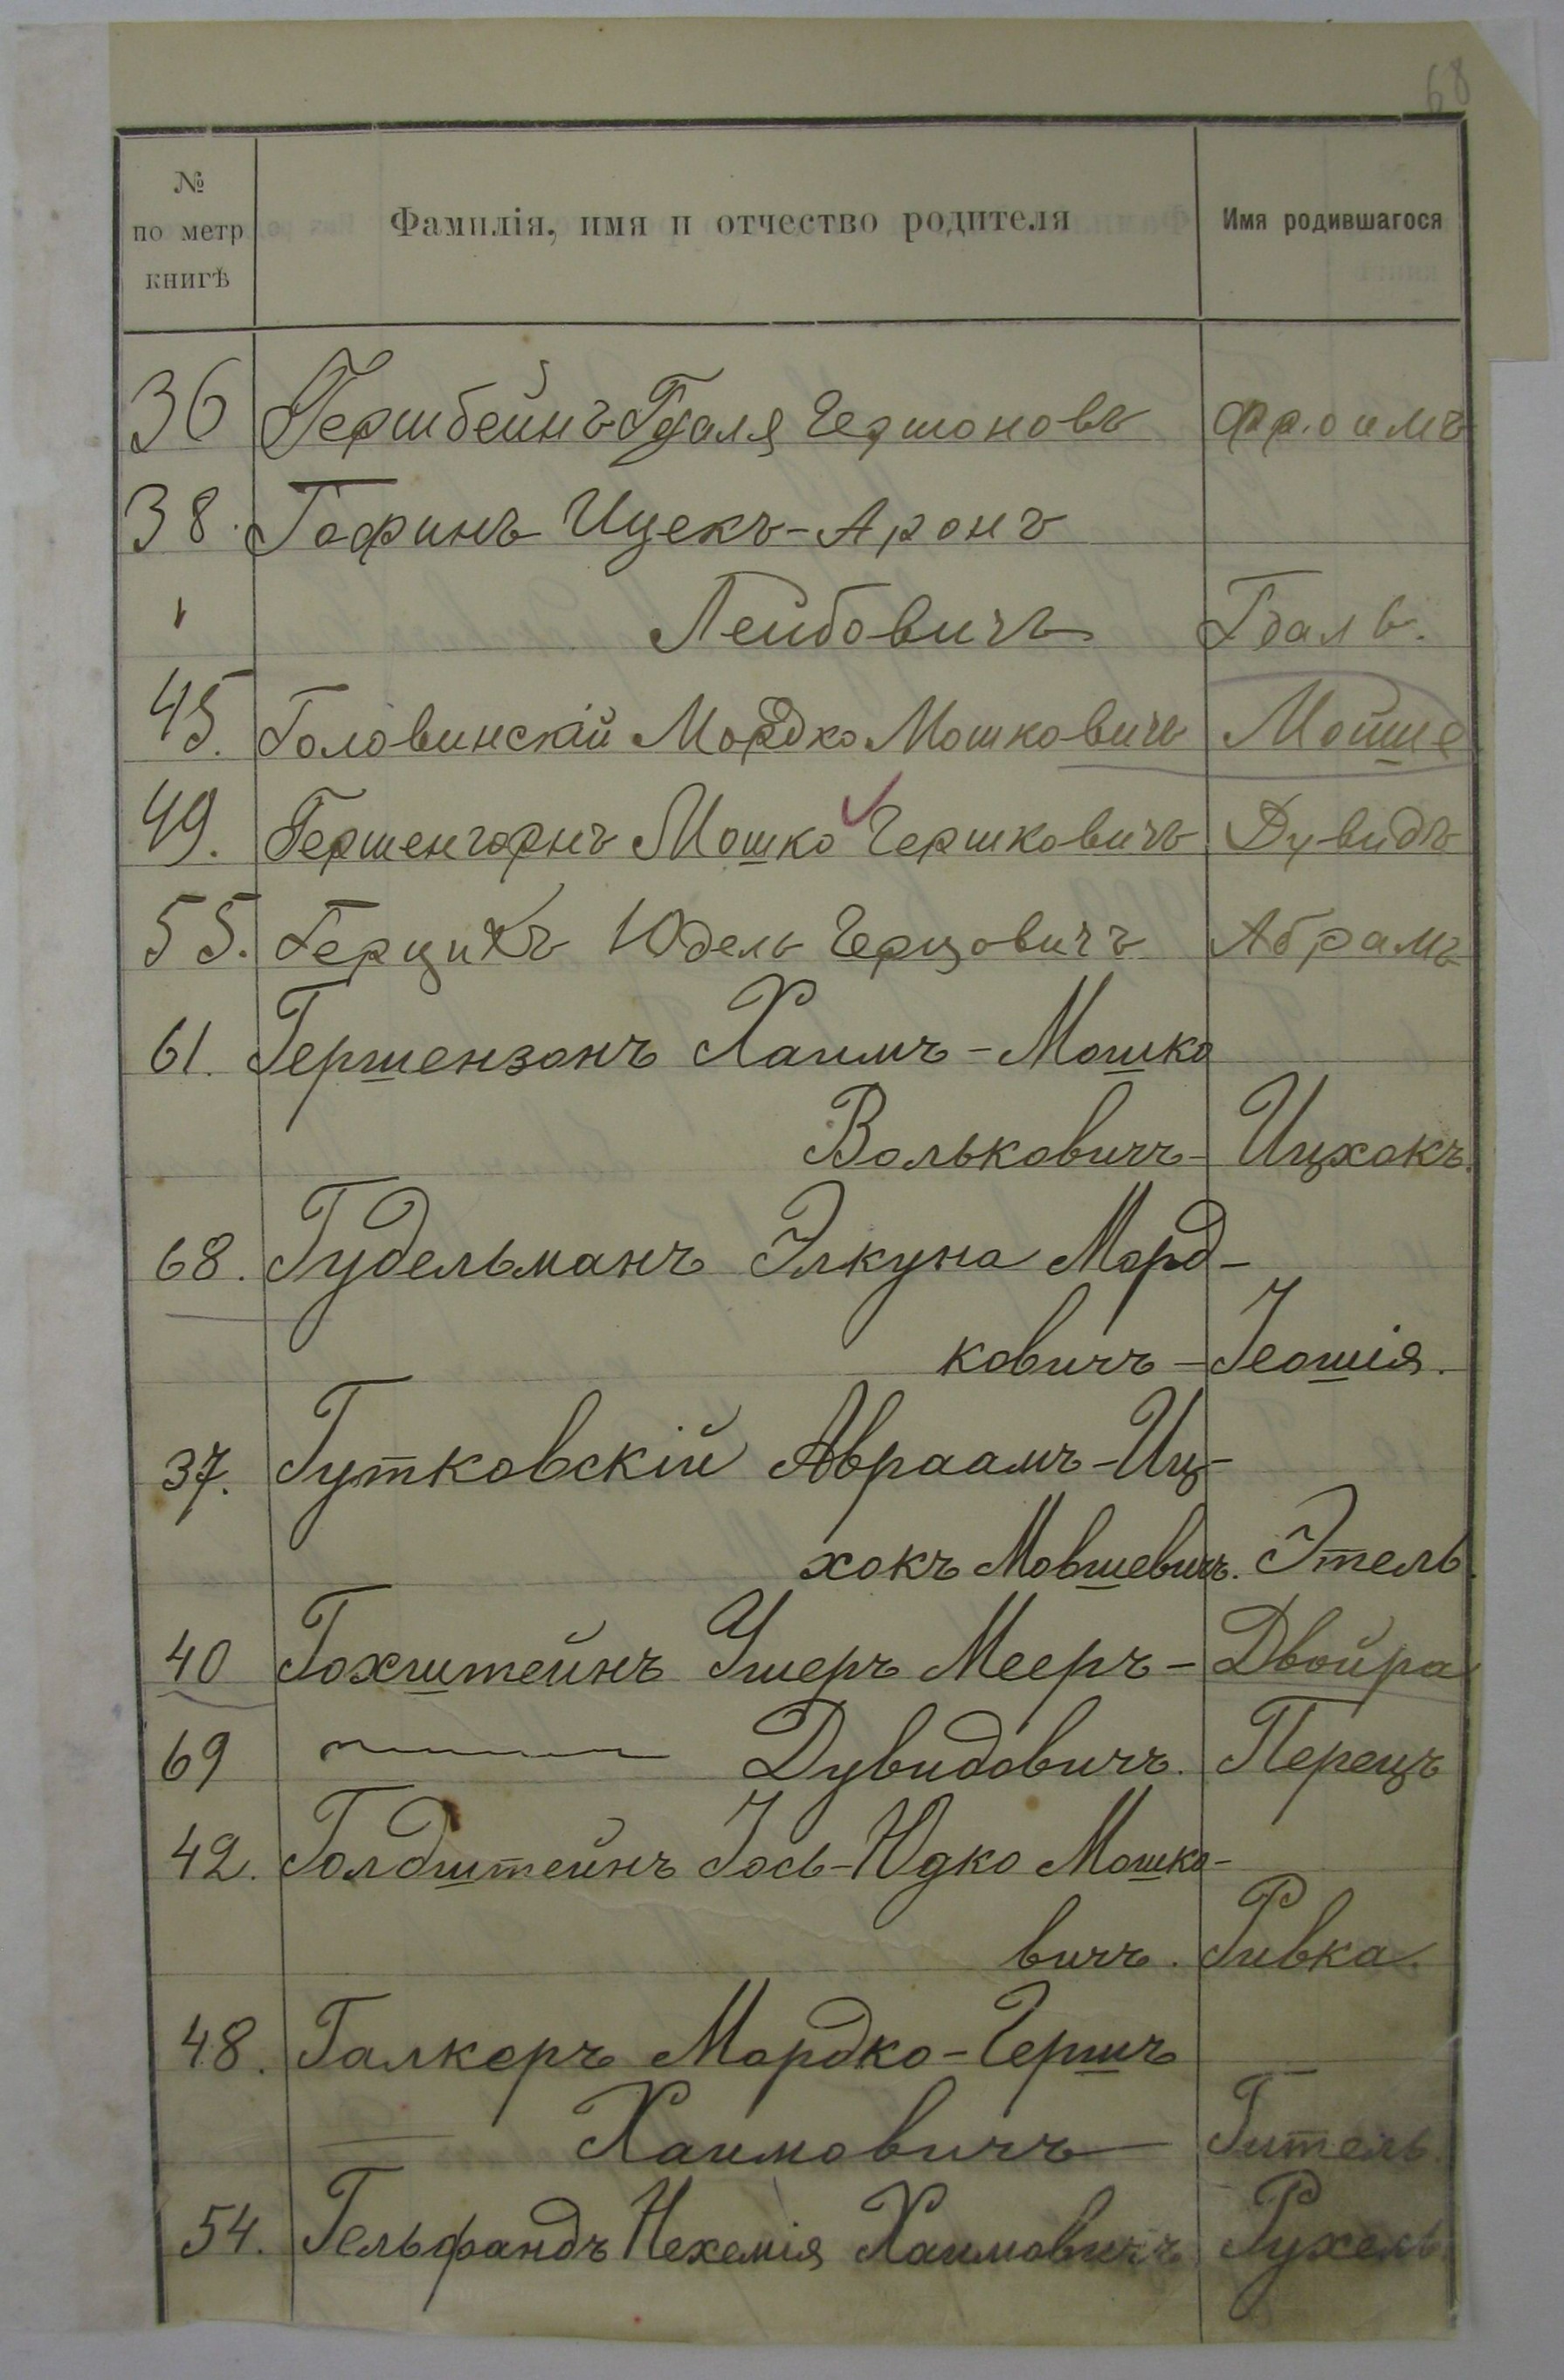 68
№ по метр книгѣ Фамилія, имя и отчество родителя Имя родившагося
36 Гершбейнъ Гдаля Гершоновъ Фроимъ
38. Гофинъ Ицекъ-Аронъ
" Лейбовичъ Гдаль.
45. Головинскій Мордко Мошковичъ Мойше
49. Гершенгорнъ Мошко Гершковичъ Дувидъ
55. Герцикъ Юдель Герцовичъ Абрамъ
61. Гершензонъ Хаимъ-Мошко
Вольковичъ- Ицхокъ.
68. Гудельманъ Элкуна Морд-
ковичъ - Іеошія.
37. Гутковскій Авраамъ-Иц-
хокъ Мовшевичъ. Этель.
40 Гохштейнъ Ушеръ Мееръ- Двойра
69 Дувидовичъ. Перецъ
42. Голдштейнъ Іось-Юдко Мошко-
вичъ. Ривка.
48. Галкеръ Мордко-Гершъ
Хаимовичъ Гитель.
54. Гельфандъ Нехемія Хаимовичъ Рухель